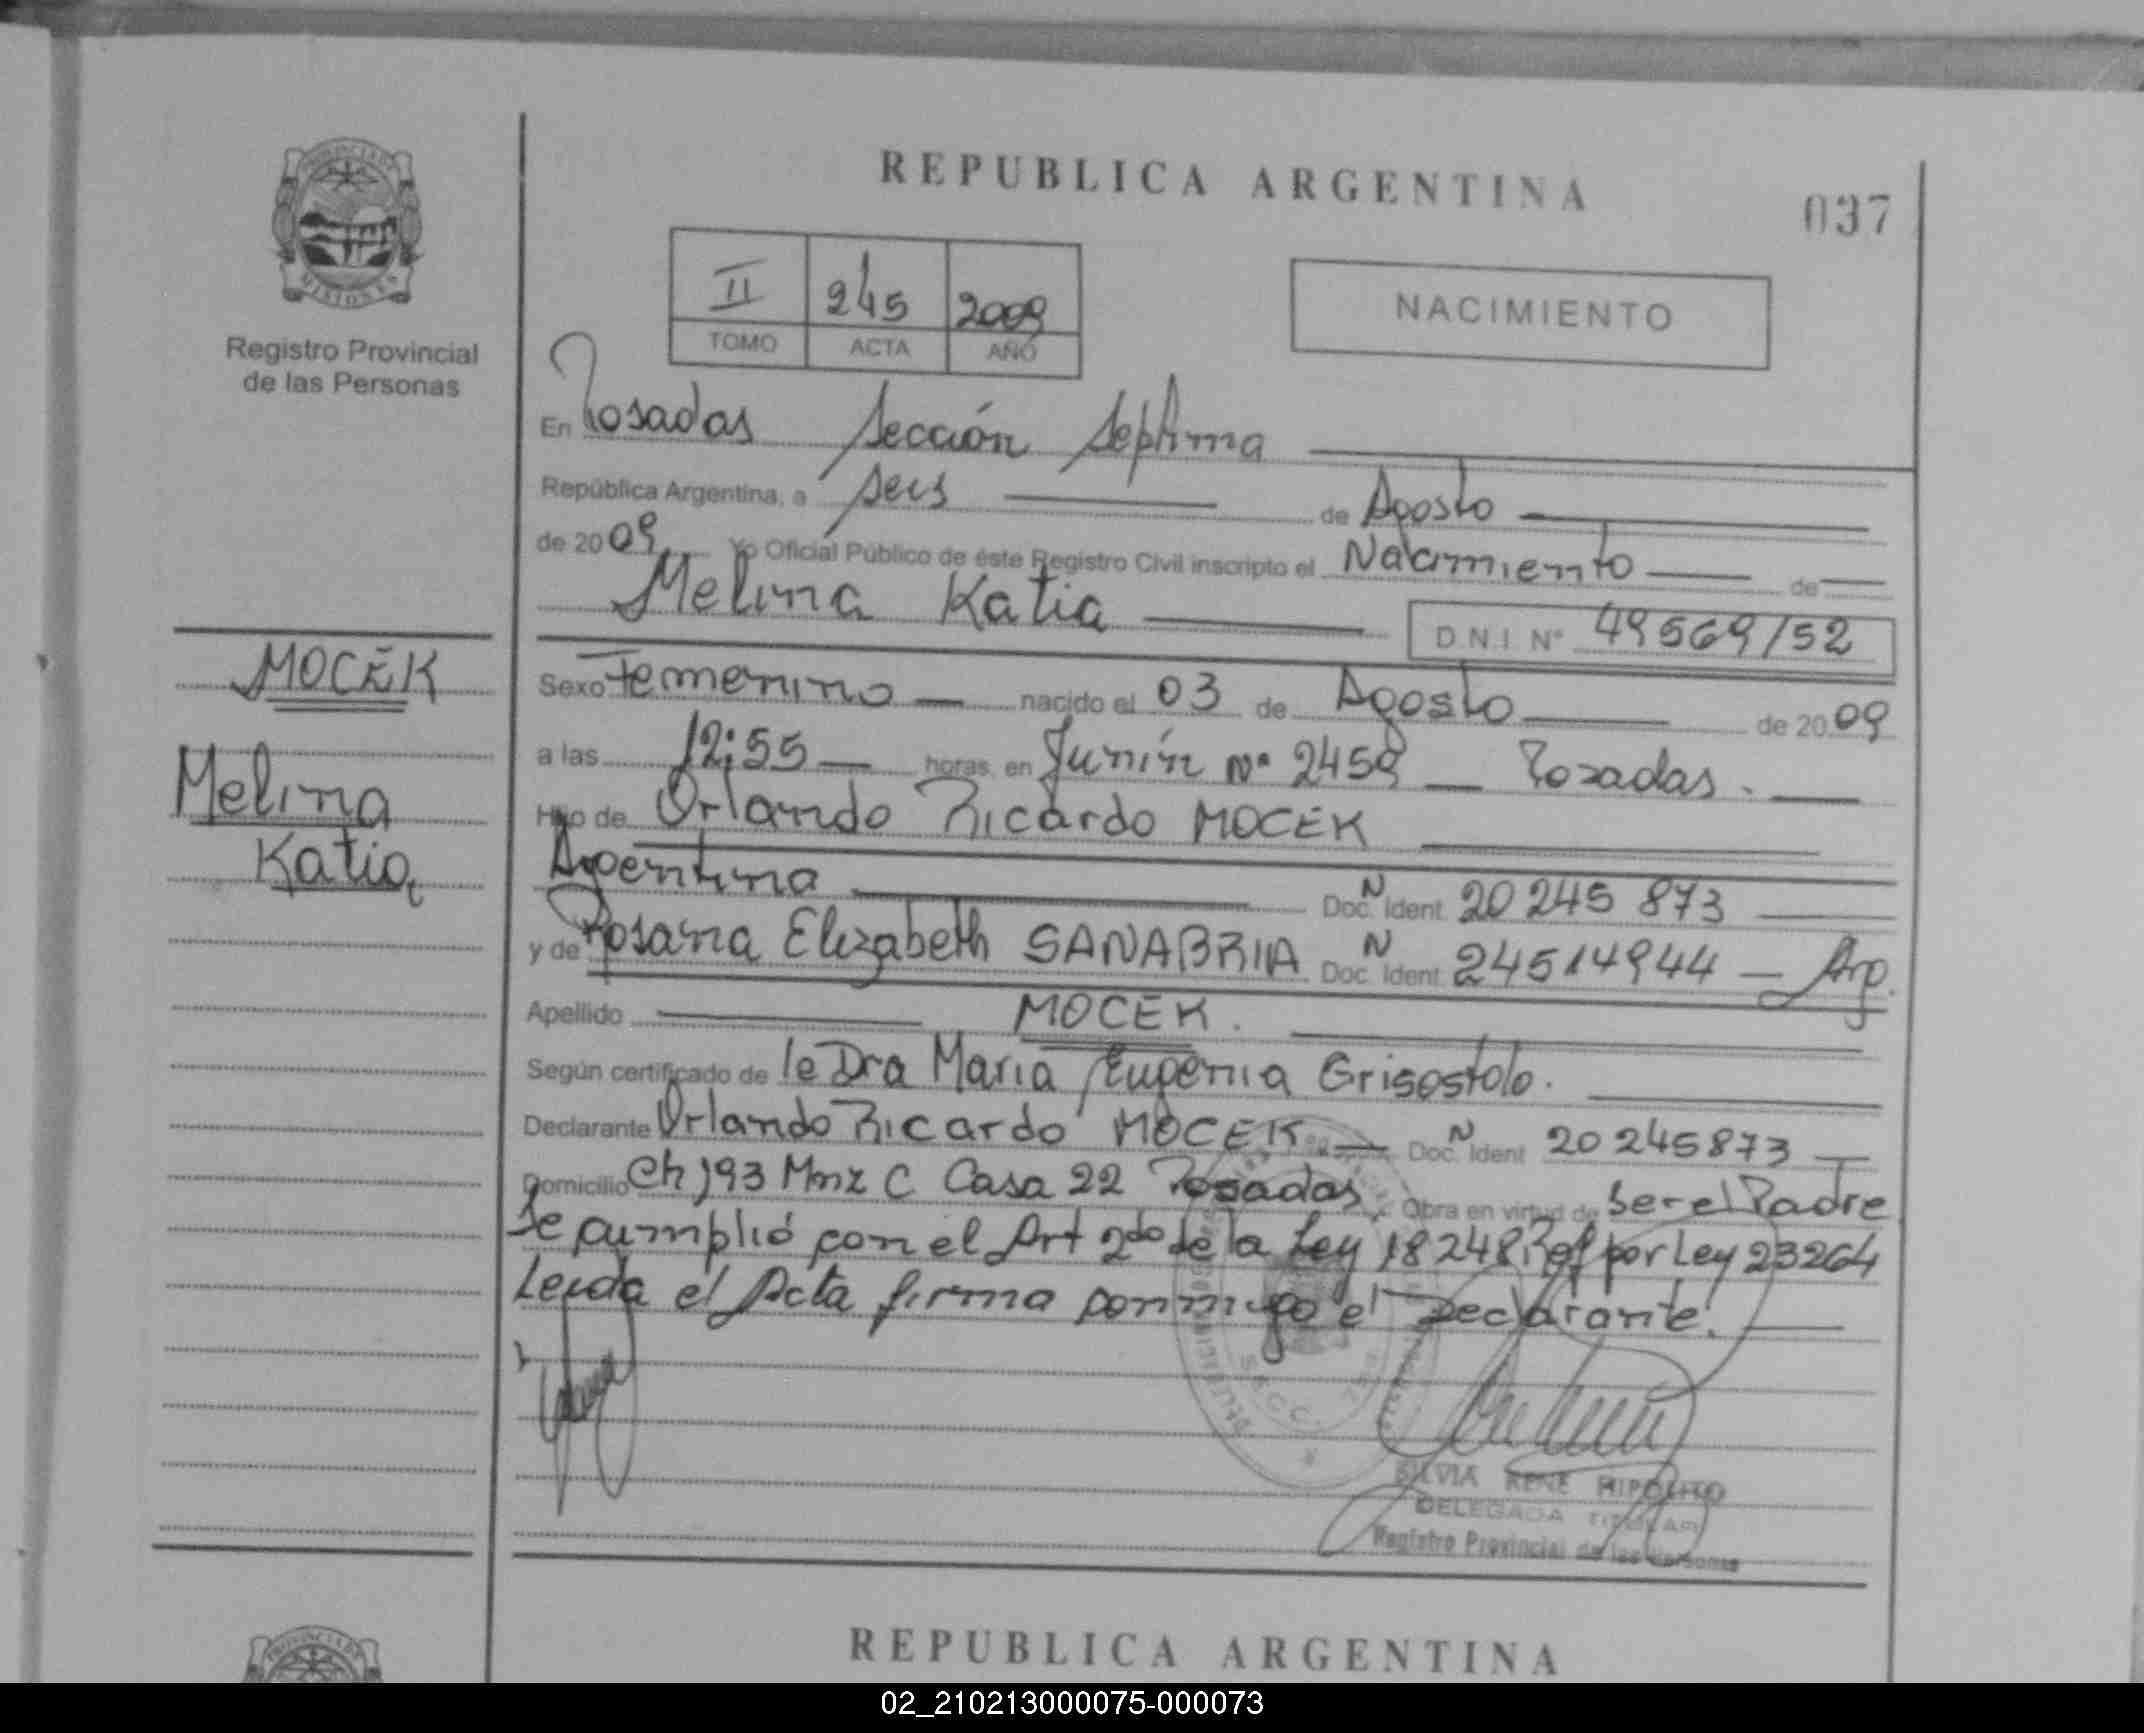 REPUBLICA ARGENTINA
037
II 245 2009
TOMO ACTA AÑO
NACIMIENTO
PROVINCIA DE
MISIONES
Registro Provincial
de las Personas
En Posadas Sección Septima
República Argentina, a seis de Agosto
de 2009 Yo Oficial Público de éste Registro Civil inscripto el Nacimiento de
Melina Katia D.N.I. Nº 49569152
MOCEK
Melina
Katia
Sexo Femenino nacido el 03 de Agosto de 2009
a las 12:55 horas, en Junín Nº 2459 Posadas.
Hijo de Orlando Ricardo MOCEK
Argentina Doc. N Ident 20 245 873
y de Rosana Elizabeth SANABRIA Doc. N Ident 24514944 Arg.
Apellido MOCEK.
Según certificado de la Dra Maria Eugenia Grisostolo.
Declarante Orlando Ricardo MOCEK Doc. N Ident 20 245873
Domicilio Ch 193 Mnz C Casa 22 Posadas Obra en virtud de Ser el Padre
Se cumplió con el Art 2do de la Ley 18248 Ref por Ley 23264
Leida el Acta firma conmigo el Declarante.
SECC. 7
SILVIA RENE HIPOLITO
DELEGADA TITULAR
Registro Provincial de las Personas
REPUBLICA ARGENTINA
02_210213000075-000073